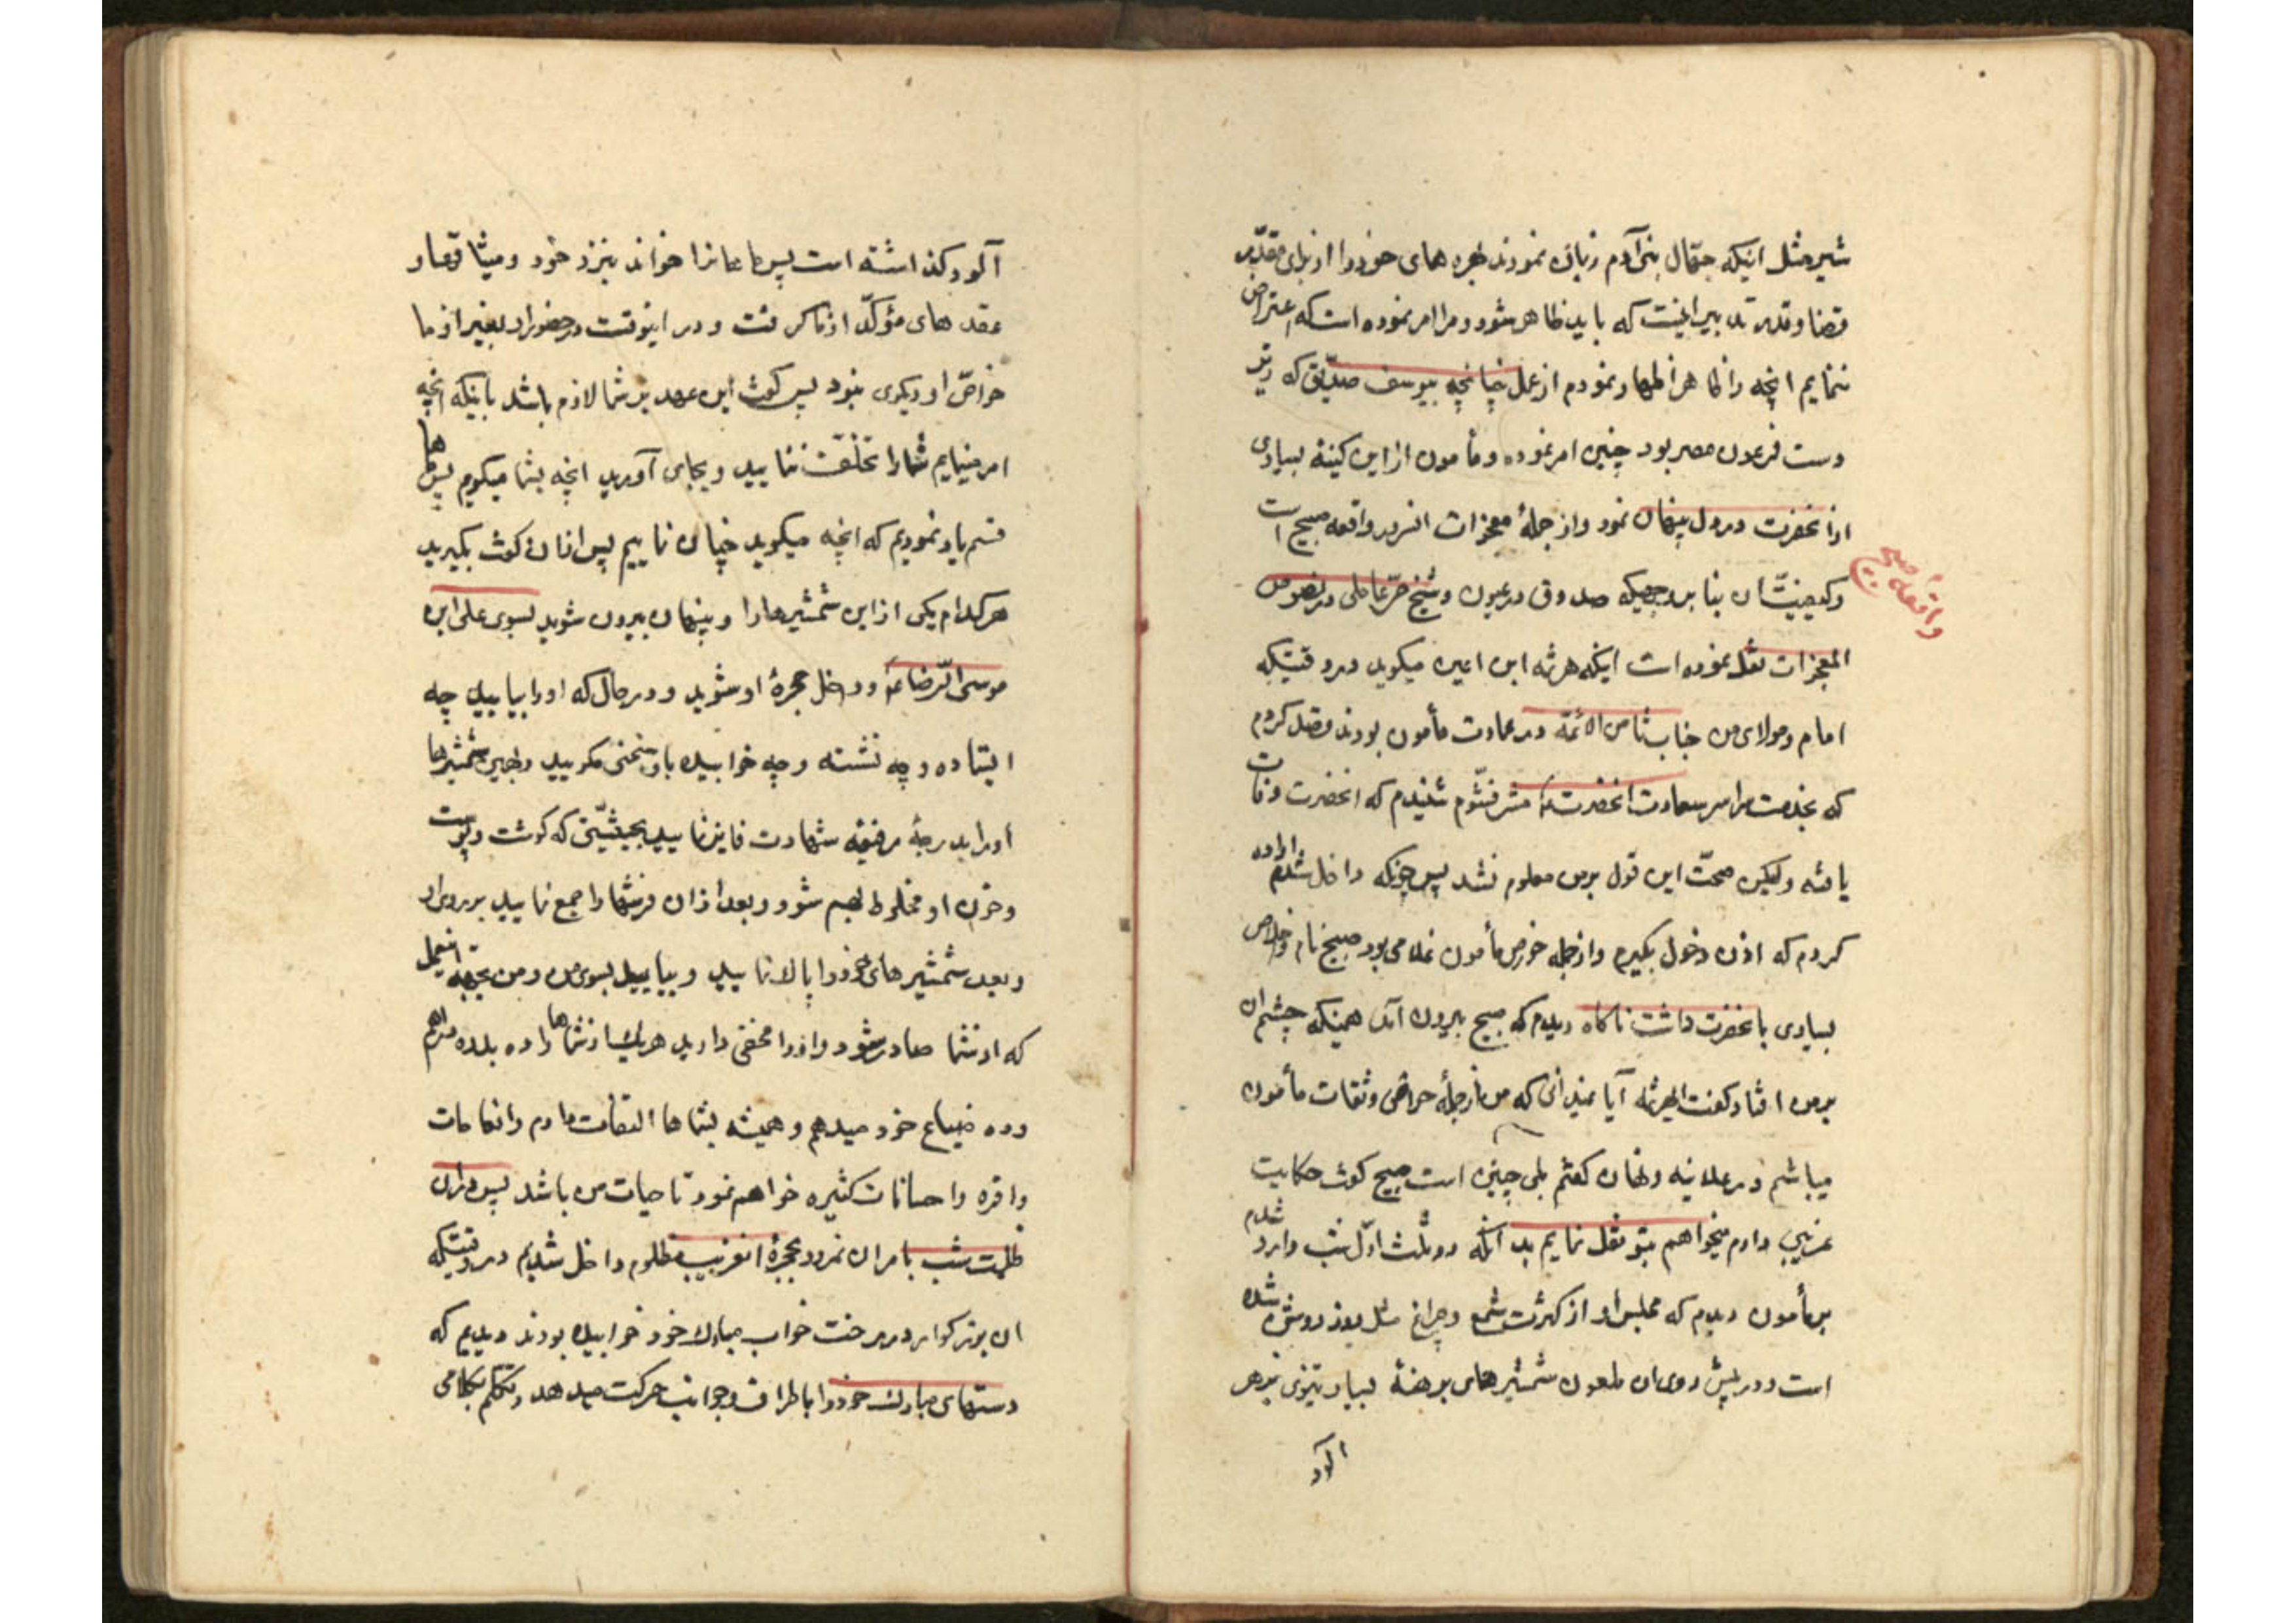 شیر مثل اینکه جهّال بنی آدم زیان نمودند بهره های خود را از برای مقدّر
قضا و قدر تدبیر اینست که باید ظاهر شود و مرا امر نموده است که اعتراض
ننمایم انچه را ظاهرا اظهار نمودم از عمل چنانچه یوسف صدّیق که زیر
دست فرعون مصر بود چنین امر نموده و مأمون از این کینهٔ بسیاری
از انحضرت در دل پنهان نمود و از جملهٔ معجزات انسرور واقعه صبیح است
و کیفیّت ان بنا بر وجهیکه صدوق در عیون و شیخ حرّ عاملی در نصوص
واقعه صبیح
المعجزات نقل نموده است اینکه هرثمه ابن اعین میکوید در وقتیکه
امام و مولای من جناب ثامن الائمّه در عمارت مأمون بودند قصد کردم
که بخدمت سراسر سعادت انحضرت مشرّف شوم شنیدم که انحضرت وفات
یافته ولیکن صحّت این قول بر من معلوم نشد پس چونکه داخل شدم اراده
کردم که اذن دخول بگیرم و از جمله خواص مأمون غلامی بود صبیح نام و اخلاص
بسیاری بانحضرت داشت ناکاه دیدم که صبیح بیرون آمد همینکه چشم ان
بر من افتاد کفت ای هرثمه آیا نمیدانی که من از جملهٔ خواص و ثقات مأمون
میباشم در علانیه و نهان کفتم بلی چنین است صبیح کوفت حکایت
غریبی دارم میخواهم بتو نقل نمایم بدانکه دو ثلث اوّل شب وارد شدم
بر مأمون دیدم که مجلس او از کثرت شمع و چراغ مثل روز روشن شده
است و در پیش روی ان ملعون شمشیرهای برهنهٔ بسیار تیزی بزهر
آلود
آلود کذاشته است پس ماها نرا خواند بنزد خود و میثاقها و
عقدهای مؤکّد از ما کرفت و در اینوقت در حضور او بغیر از ما
خواصّ او دیکری نبود پس کوفت این عهد بر شما لازم باشد باینکه انچه
امر مینمایم شما را تخلّف ننمایید و بجای آورید انچه بشما میکویم پس ماها
قسم یاد نمودیم که انچه میکوید چنان نماییم پس انان کوفت بکیرید
هر کدام یکی از این شمشیرها را و پنهان بیرون شوید بسوی علی ابن
موسی الرّضا و داخل حجرهٔ او شوید و در حالی که او را بیابید چه
ایستاده و چه نشسته و چه خوابیده با او سخنی مکویید و بهمین شمشیرها
او را بدرجهٔ رفیعهٔ شهادت فایز نمایید بحیثیّتی که کوشت و پوست
و خون او مخلوط بهم شود و بعد از ان فرشها را جمع نمایید بر روی او
و بعد شمشیرهای خود را پاک نمایید و بیایید بسوی من و من بجهة انعمل
که از شما صادر شود و او را مخفی دارید هر یک از شماها را ده بدره درهم
و ده ضیاع خود میدهم و همیشه بشماها التفات دارم و انعامات
وافره و احسانات کثیره خواهم نمود تا حیات من باشد پس در ان
ظلمت شب بامر ان نمرود بحجرهٔ انغریب مظلوم داخل شدیم در وقتیکه
ان بزرکوار در رخت خواب مبارک خود خوابیده بودند دیدیم که
دستهای مبارک خود را باطراف و جوانب حرکت میدهد و تکلّم بکلامی